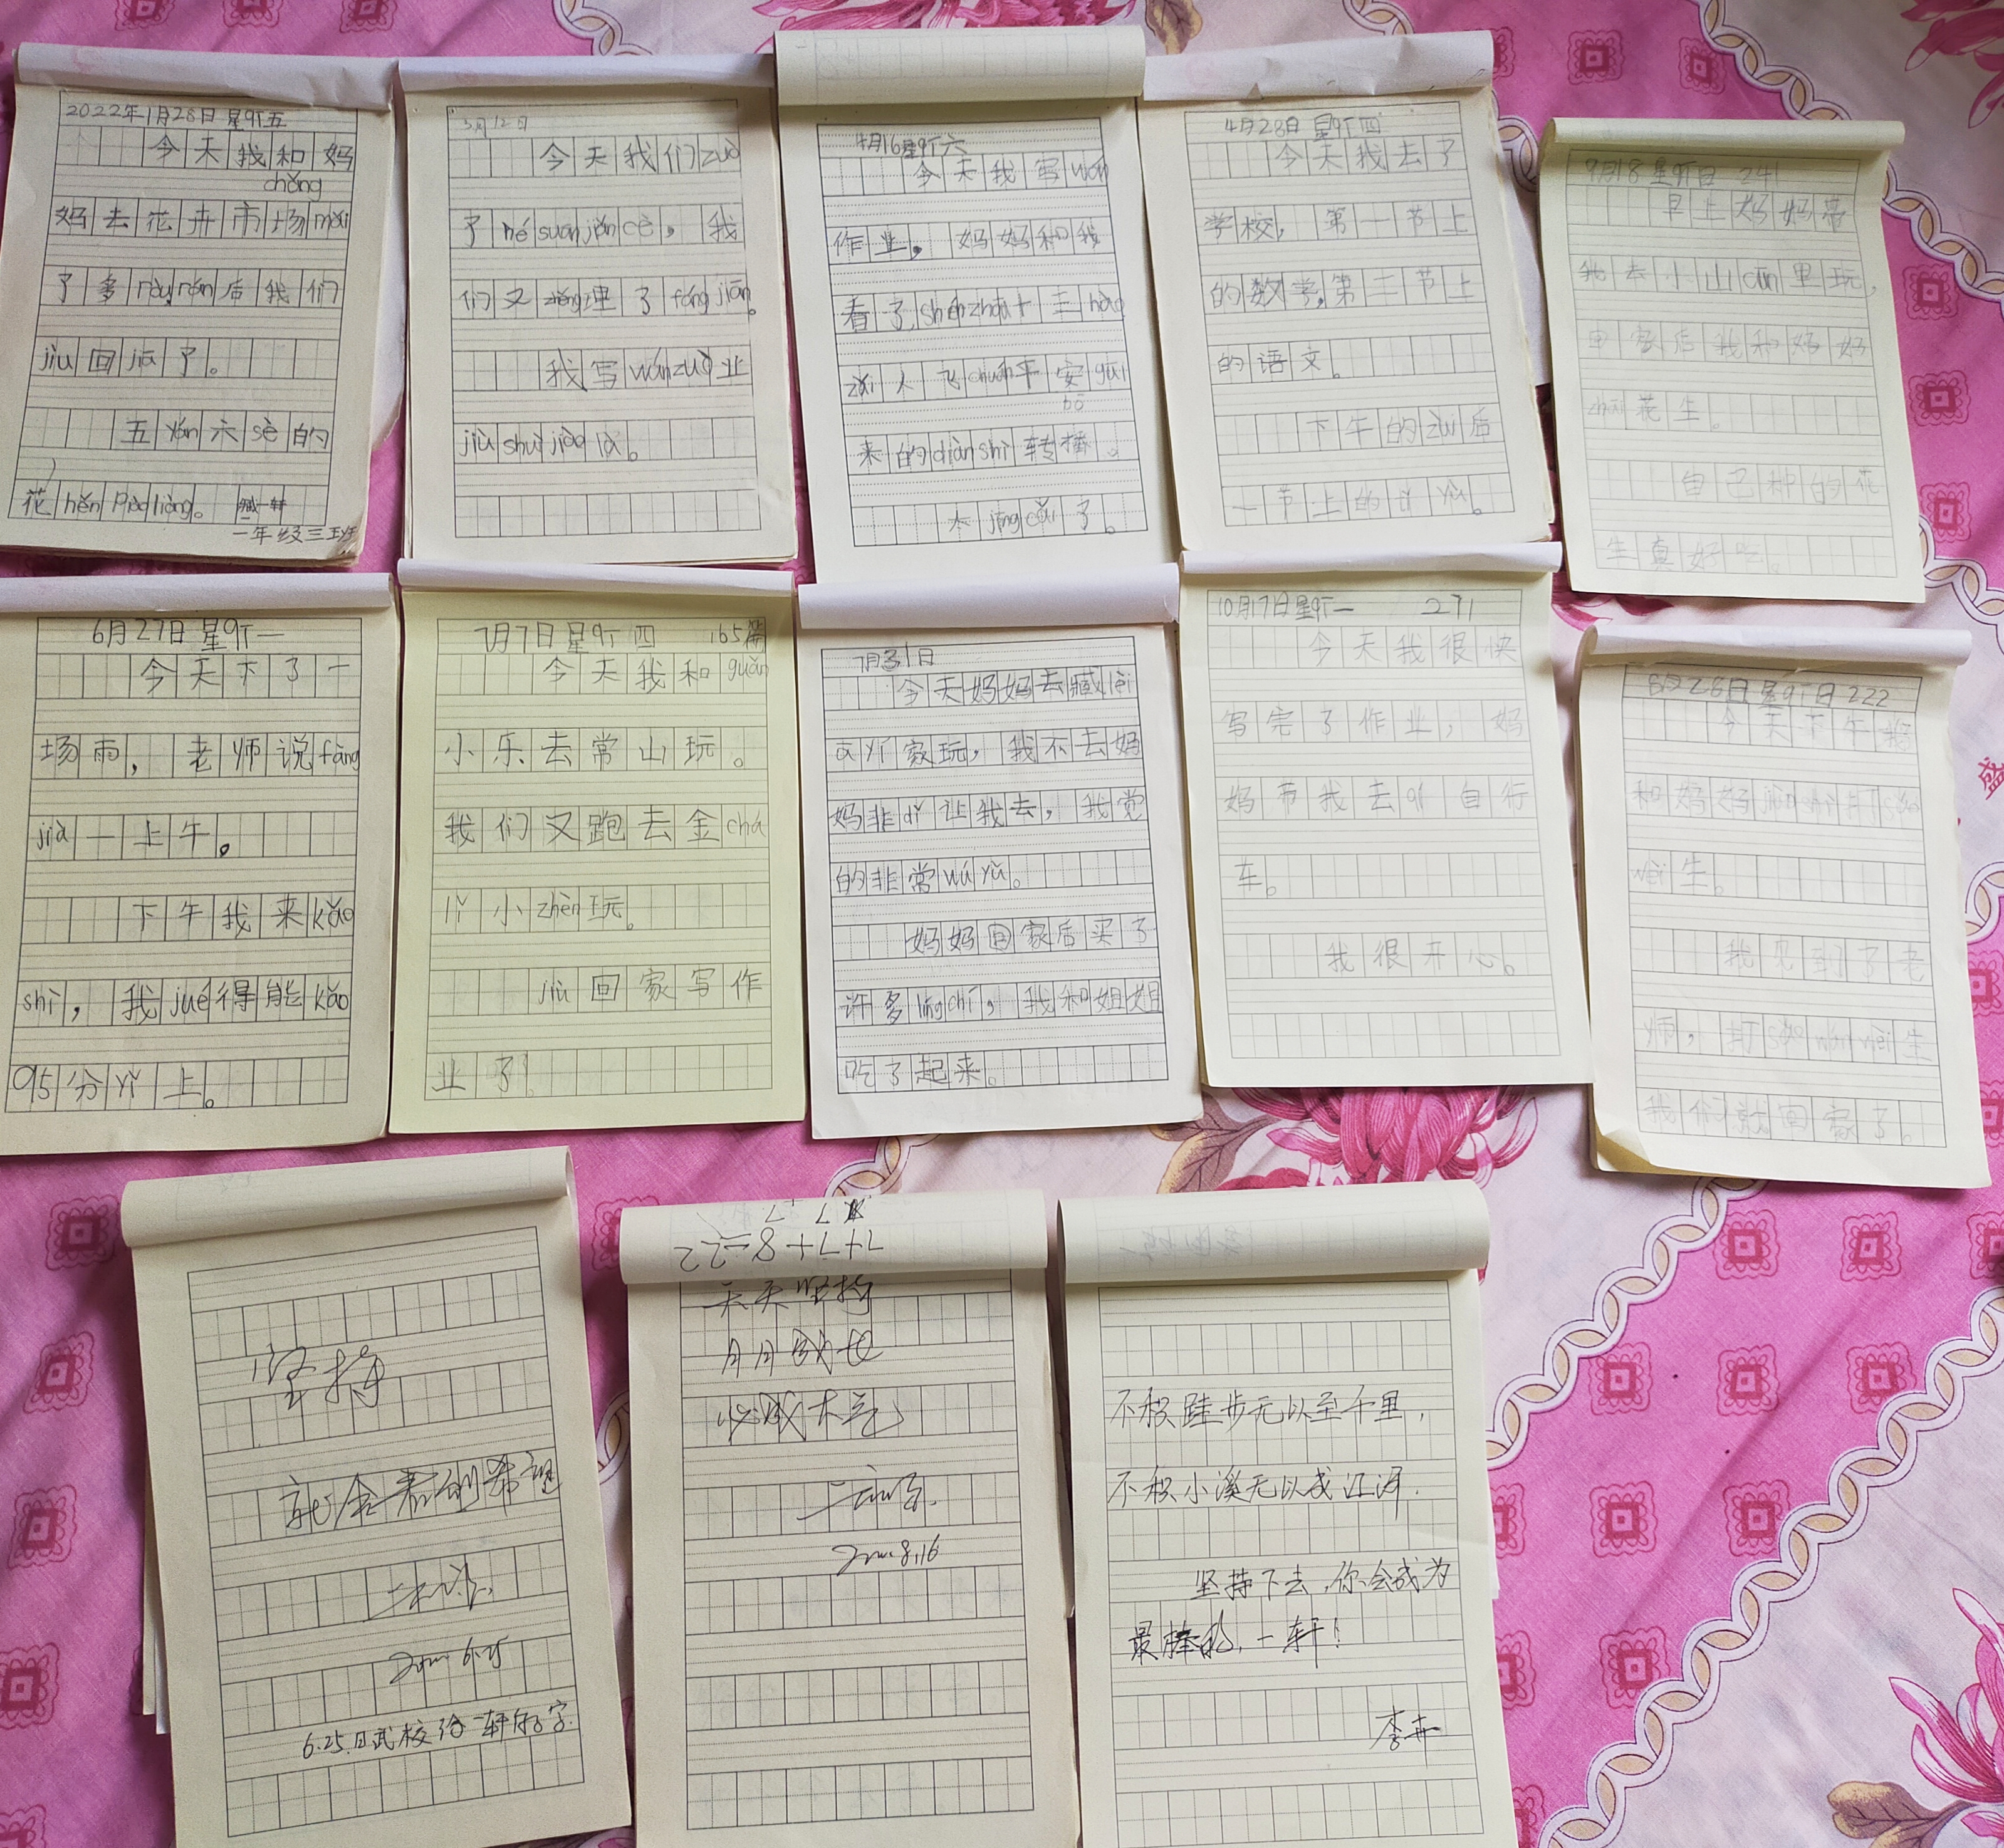 2022年1月28日 星qī五
今天我和妈
chǎng
妈去花卉市场mǎi
了多ròu rán后我们
jiù回jiā了。
五yán六sè的
花hěn piào liàng。 臧一轩
一年级三班
3月12日
今天我们zuò
了hé suān jiǎn cè，我
们又zhěng理了fáng jiān。
我写wán zuò业
jiù shuì jiào là。
4月16星qī六
今天我写wán
作业，妈妈和我
看了shén zhōu十三hào
zài人飞chuán平安guī
bō
来的diàn shì转播。
太jīng cǎi了。
4月28日 星qī四
今天我去了
学校，第一节上
的数学，第二节上
的语文。
下午的zuì后
一节上的tǐ yù。
9月18 星qī日 241
早上妈妈带
我去小山cūn里玩，
回家后我和妈妈
zhāi花生。
自己种的花
生真好吃。
6月27日 星qī一
今天下了一
场雨，老师说fàng
jià一上午。
下午我来kǎo
shì，我jué得能kǎo
95分yǐ上。
7月7日 星qī四 165篇
今天我和guān
小乐去常山玩。
我们又跑去金chá
lǐ小zhèn玩。
jiù回家写作
业了！
7月31日
今天妈妈去臧lěi
ā yí家玩，我不去妈
妈非dǐ让我去，我觉
的非常wú yǔ。
妈妈回家后买了
许多líng chī，我和姐姐
吃了起来。
10月17日星qī一 271
今天我很快
写完了作业，妈
妈带我去qí自行
车。
我很开心。
8月28日 星qī日 222
今天下午我
和妈妈 打sǎo
wèi生。
我见到了老
师，打sǎo wán wèi生
我们就回家了。
坚持
就会看到希望
6.25
6.25.日武校给一轩的字.
7+7+8=22
天天坚持
月月
必成大气
8.16
不积跬步无以至千里，
不积小溪无以成江河.
坚持下去，你会成为
最棒的，一轩！